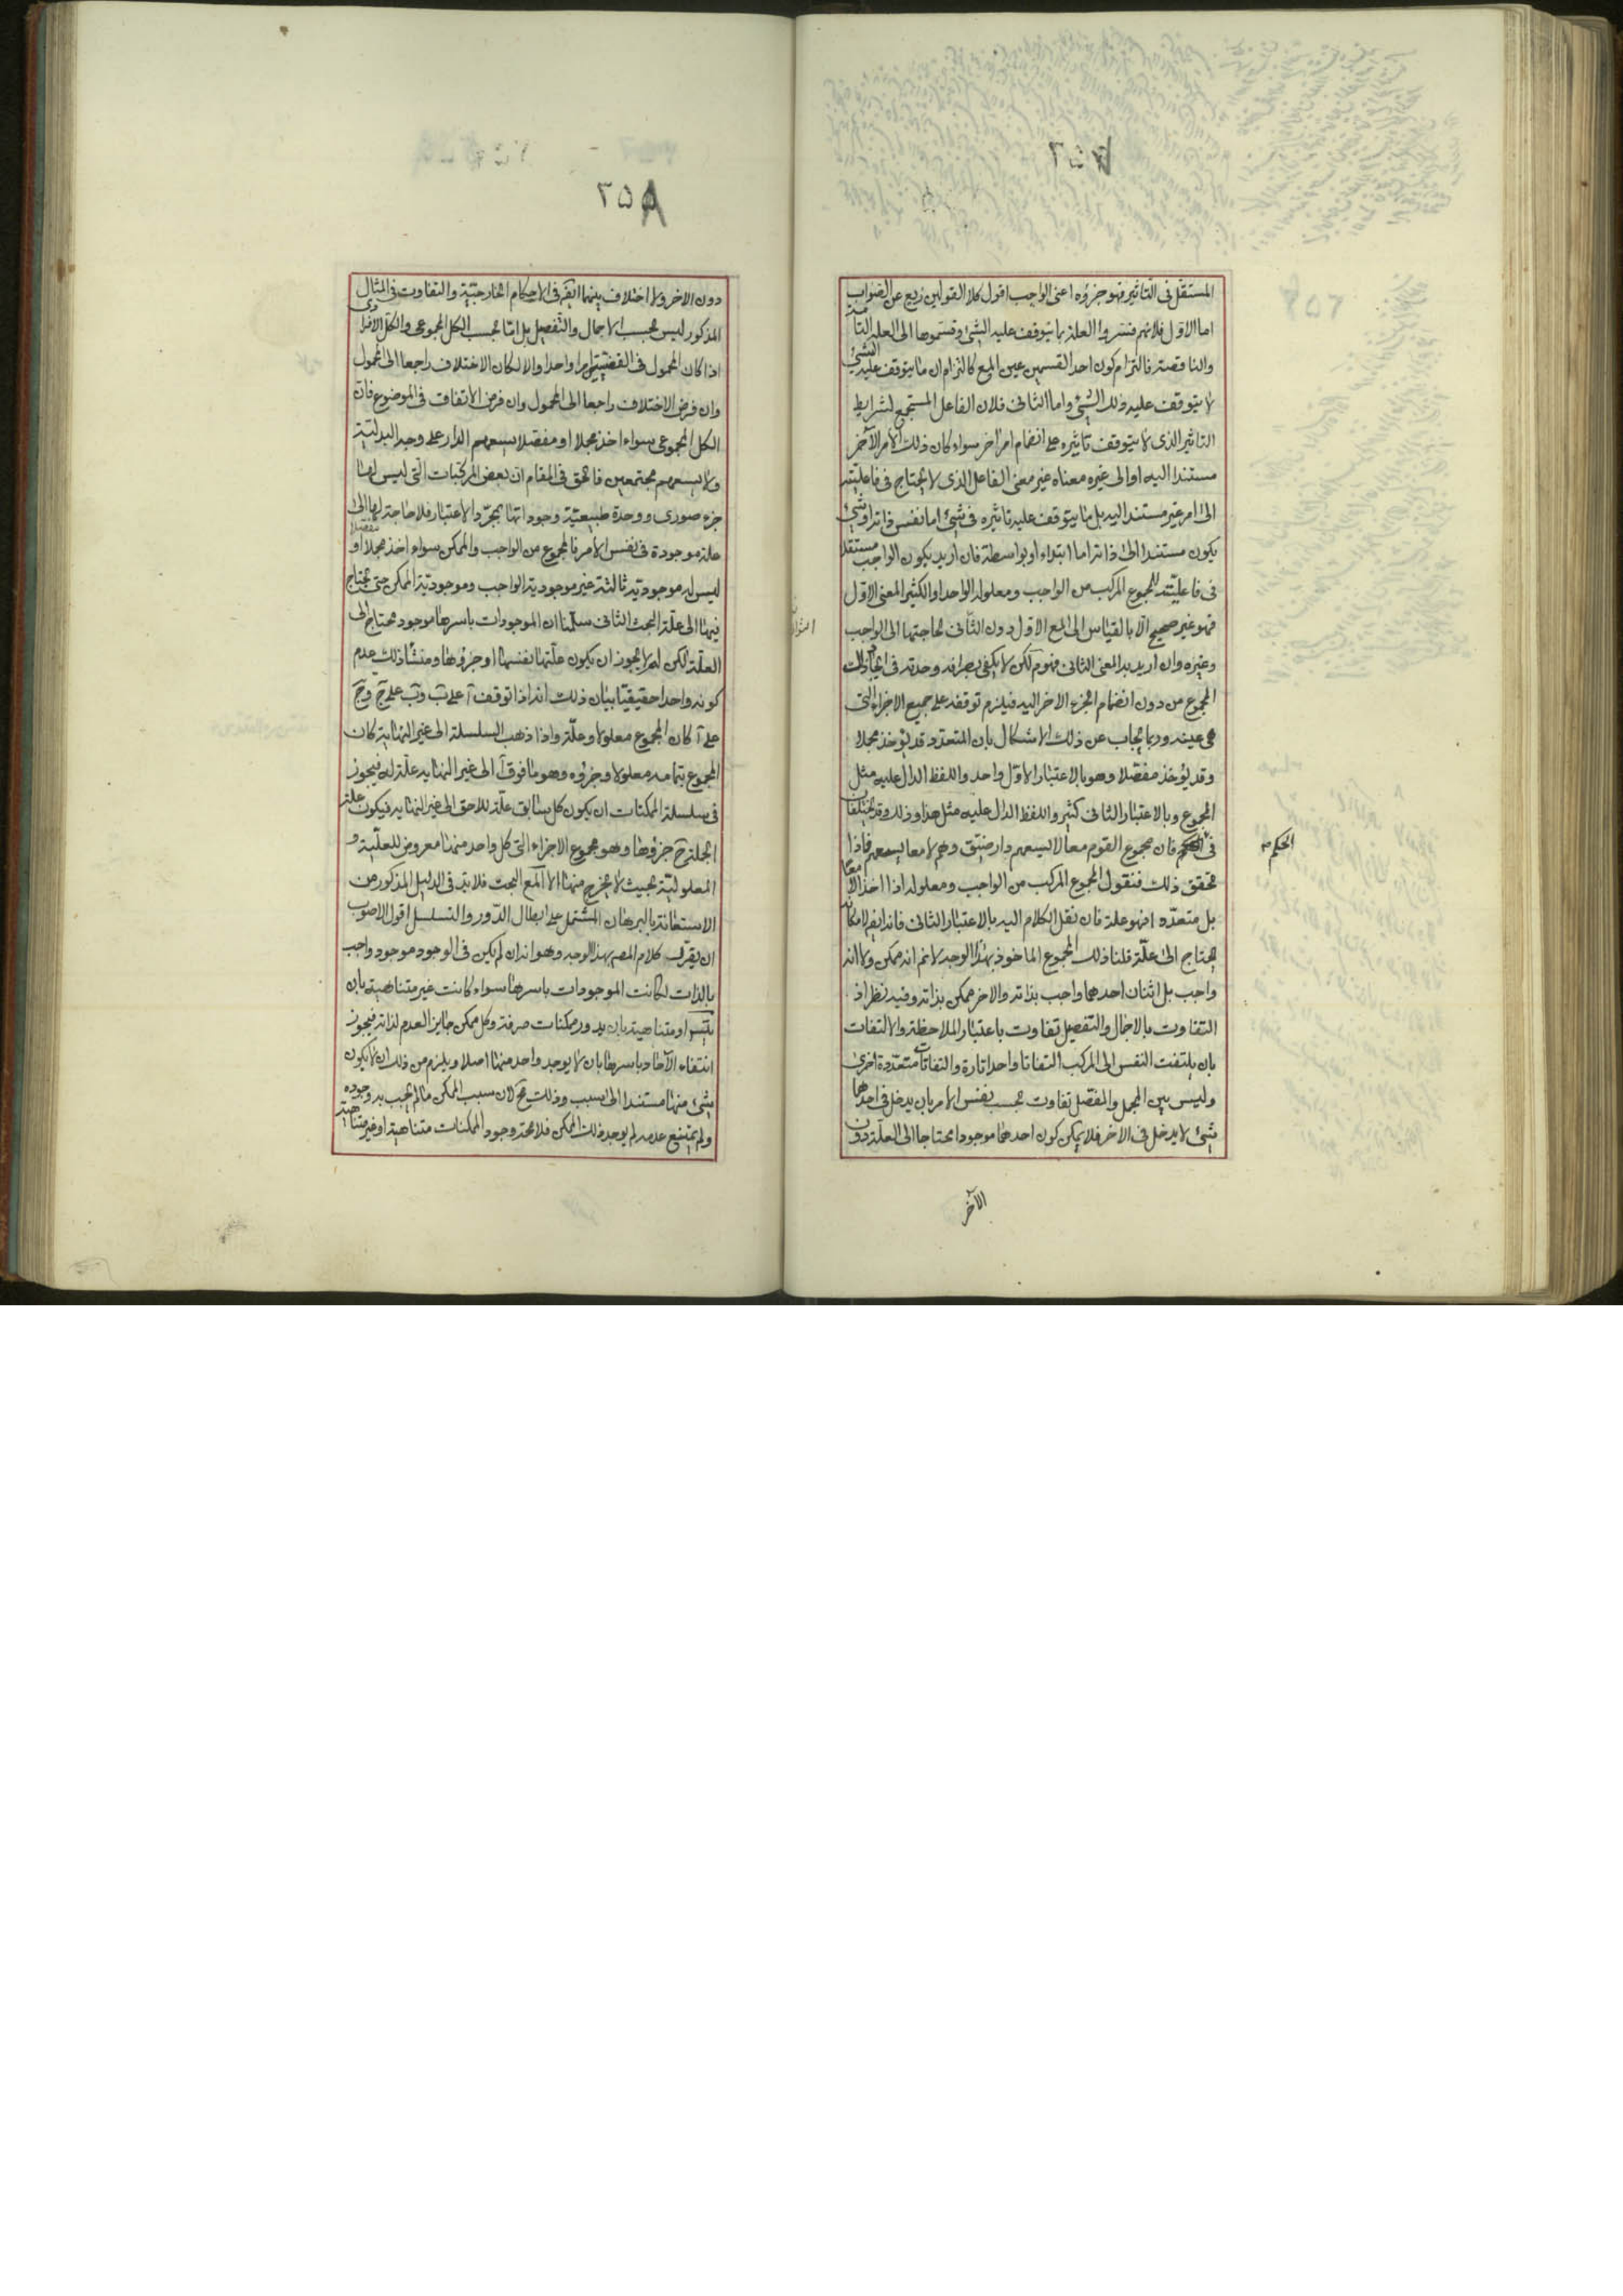 المستقل فى التاثير فهو جزؤه اعنى الواجب اقول كلا القولين زيغ عن الصواب
اما الاول فلانهم فسروا العلة بما يتوقف عليه الشئ وقسموها الى العلة التامة
والناقصة فالتزام كون احد القسمين عين المع كالتزام ان ما يتوقف عليه الشئ
لا يتوقف عليه ذلك الشئ واما الثانى فلان الفاعل المستجمع لشرايط
التاثير الذى لا يتوقف تاثيره على انضمام امر اخر سواء كان ذلك الامر الآخر
مستندا اليه او الى غيره معناه غير معنى الفاعل الذى لا يحتاج فى فاعليته
الى امر غير مستند اليه بل ما يتوقف عليه تاثيره فى شئ اما نفس ذاته او شئ
يكون مستندا الى ذاته اما ابتداء او بواسطة فان اريد بكون الواجب مستقلا
فى فاعليته لمجموع المركب من الواجب ومعلوله الواحد او الكثير المعنى الاول
فهو غير صحيح الا بالقياس الى المع الاول دون الثانى لحاجتها الى الواجب
وغيره وان اريد به المعنى الثانى فهو م لكن لا يكفى بصرافة وحدته فى ايجاد ذلك
المجموع من دون انضمام الجزء الاخر اليه فيلزم توقفه على جميع الاجزاء التى
هى عينه وربما يجاب عن ذلك الاشكال بان المتعدد قد يؤخذ مجملا
وقد يؤخذ مفصلا وهو بالاعتبار الاول واحد واللفظ الدال عليه مثل
المجموع وبالاعتبار الثانى كثير واللفظ الدال عليه مثل هذا وذلك وقد يختلفان
فى الحكم فان مجموع القوم معا لا يسعهم دار ضيق وهم لا معا يسعهم فاذا
الحكم
تحقق ذلك فنقول المجموع المركب من الواجب ومعلوله اذا اخذ لا معا
بل متعددا فهو علة فان نقل الكلام اليه بالاعتبار الثانى فانه ايضا لامكانه
يحتاج الى علة قلنا ذلك المجموع الماخوذ بهذا الوجه لا نم انه ممكن ولا انه
واجب بل اثنان احدهما واجب بذاته والاخر ممكن بذاته وفيه نظر اذ
التفاوت بالاجمال والتفصيل تفاوت باعتبار الملاحظة والالتفات
بان يلتفت النفس الى المركب التفاتا واحدا تارة والتفاتات متعددة اخرى
وليس بين المجمل والمفصل تفاوت بحسب نفس الامر بان يدخل فى احدهما
شئ لا يدخل فى الاخر فلا يمكن كون احدهما موجودا محتاجا الى العلة دون
الآخر
٢٥٨
دون الاخر ولا اختلاف بينهما ايضا فى الاحكام الخارجية والتفاوت فى المثال
المذكور ليس بحسب الاجمال والتفصيل بل انما بحسب الكل المجموعى والكل الافرادى
اذا كان المحمول فى القضيتين امرا واحدا والا لكان الاختلاف راجعا الى المحمول
وان فرض الاختلاف راجعا الى المحمول وان فرض الاتفاق فى الموضوع فان
الكل المجموعى سواء اخذ مجملا او مفصلا يسعهم الدار على وجه البدلية
ولا يسعهم مجتمعين فالحق فى المقام ان بعض المركبات التى ليس لها
جزء صورى ووحدة طبيعية وجوداتها بمجرد الاعتبار فلا حاجة لها الى
علة موجودة فى نفس الامر فالمجموع من الواجب والممكن سواء اخذ مجملا او مفصلا
ليس له موجودية ثالثة غير موجودية الواجب وموجودية الممكن حتى يحتاج
فيها الى علة البحث الثانى سلمنا ان الموجودات باسرها موجود محتاج الى
العلة لكن لم لا يجوز ان يكون علتها نفسها او جزؤها ومنشا ذلك عدم
كونه واحدا حقيقيا بيان ذلك انه اذا توقف آ على ب وب على ج وج
على آ كان المجموع معلولا وعلة واذا ذهب السلسلة الى غير النهاية كان
المجموع بتمامه معلولا وجزؤه وهو ما فوق آ الى غير النهاية علة له فيجوز
فى سلسلة الممكنات ان يكون كل سابق علة للاحق الى غير النهاية فيكون علة
الجملة ح جزؤها وهو مجموع الاجزاء التى كل واحد منها معروض للعلية و
المعلولية بحيث لا يخرج منها الا المع البحت فلا بد فى الدليل المذكور من
الاستعانة بالبرهان المشتمل على ابطال الدور والتسلسل اقول الاصوب
ان يقرر كلام المصم بهذا الوجه وهو انه ان لم يكن فى الوجود موجود واجب
بالذات لكانت الموجودات باسرها سواء كانت غير متناهية بان
يتسلسل او متناهية بان يدور ممكنات صرفة وكل ممكن جايز العدم لذاته فيجوز
انتفاء الآحاد باسرها بان لا يوجد واحد منها اصلا ويلزم من ذلك ان لا يكون
شئ منها مستندا الى سبب وذلك مح لان سبب الممكن ما لم يجب به وجوده
ولم يمتنع عدمه لم يوجد ذلك الممكن فلا محة وجود الممكنات متناهية او غير متناهية